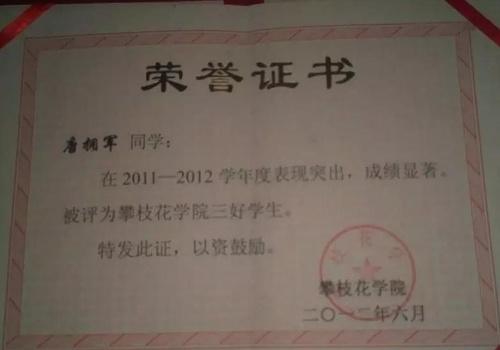 荣誉证书
唐拥军 同学:
在2011—2012学年度表现突出，成绩显著。
被评为攀枝花学院三好学生。
特发此证，以资鼓励。
攀枝花学院
二〇一二年六月